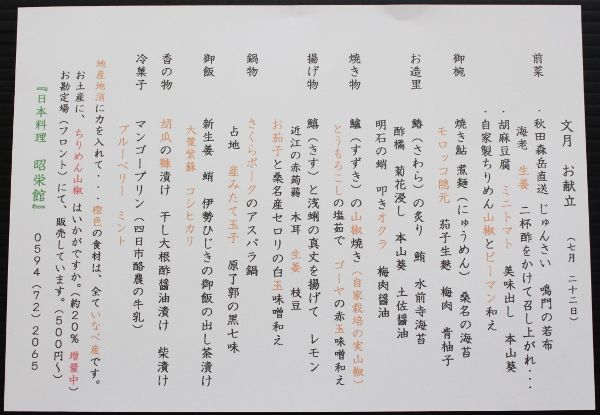 文月　お献立　（七月　二十二日）
前菜　・秋田森岳直送 じゅんさい　鳴門の若布
海老　生姜　二杯酢をかけて召し上がれ・・・
・胡麻豆腐　ミニトマト　美味出し　本山葵
・自家製ちりめん山椒とピーマン和え
御椀　焼き鮎 煮麺（にゅうめん）　桑名の海苔
モロッコ隠元　茄子生麩　梅肉　青柚子
お造里　鰆（さわら）の炙り　鮪　水前寺海苔
酢橘　菊花浸し　本山葵　土佐醤油
明石の蛸　叩きオクラ　梅肉醤油
焼き物　鱸（すずき）の山椒焼き（自家栽培の実山椒）
とうもろこしの塩茹で　ゴーヤの赤玉味噌和え
揚げ物　鱚（きす）と浅蜊の真丈を揚げて　レモン
近江の赤蒟蒻　木耳　生姜　枝豆
お茄子と桑名産セロリの白玉味噌和え
鍋物　さくらポークのアスパラ鍋
占地　産みたて玉子　原了郭の黒七味
御飯　新生姜　蛸　伊勢ひじきの御飯の出し茶漬け
大葉紫蘇　コシヒカリ
香の物　胡瓜の糠漬け　干し大根酢醤油漬け　柴漬け
冷菓子　マンゴープリン（四日市酪農の牛乳）
ブルーベリー　ミント
地産地消に力を入れて・・　橙色の食材は、全ていなべ産です。
お土産に、ちりめん山椒 はいかがですか。（約20％　増量中）
お勘定場（フロント）にて、販売しています。（500円〜）
『日本料理　昭栄館』　0594（72）2065